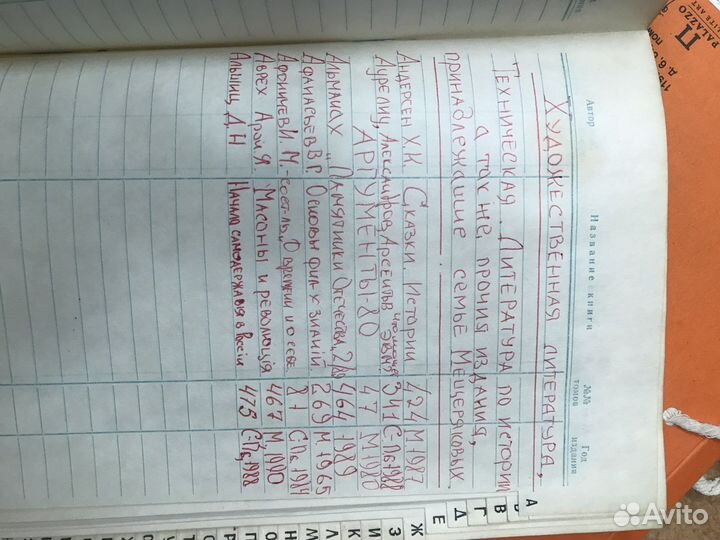 Автор Название книги №№ томов Год издания
Художественная литература,
техническая. Литература по истории
а также прочия издания,
принадлежащие семье Мещеряковых
Андерсен Х.К. Сказки. Истории 424 М 1987
Аурелиу, Александров, Арсентьв 341 С-Пб 1988
АРГУМЕНТЫ-80 47 М 1980
Альманах "Памятники Отечества, 464 1989
Афанасьев В.Г. Основы фил-х знаний 269 М 1965
М.-сост-ль "О времени и о себе 81 С-Пб 1984
Аврех Арон Я. Масоны и революция 467 М 1990
Альшиц Д.Н Начало самодержавия в России 475 С-Пб, 1988
А
В
Г
Д
Е
Ж
З
И
К
Л
М
Н
О
П
Р
С
Т
У
PALAZZO
П
Д. 6,
Avito